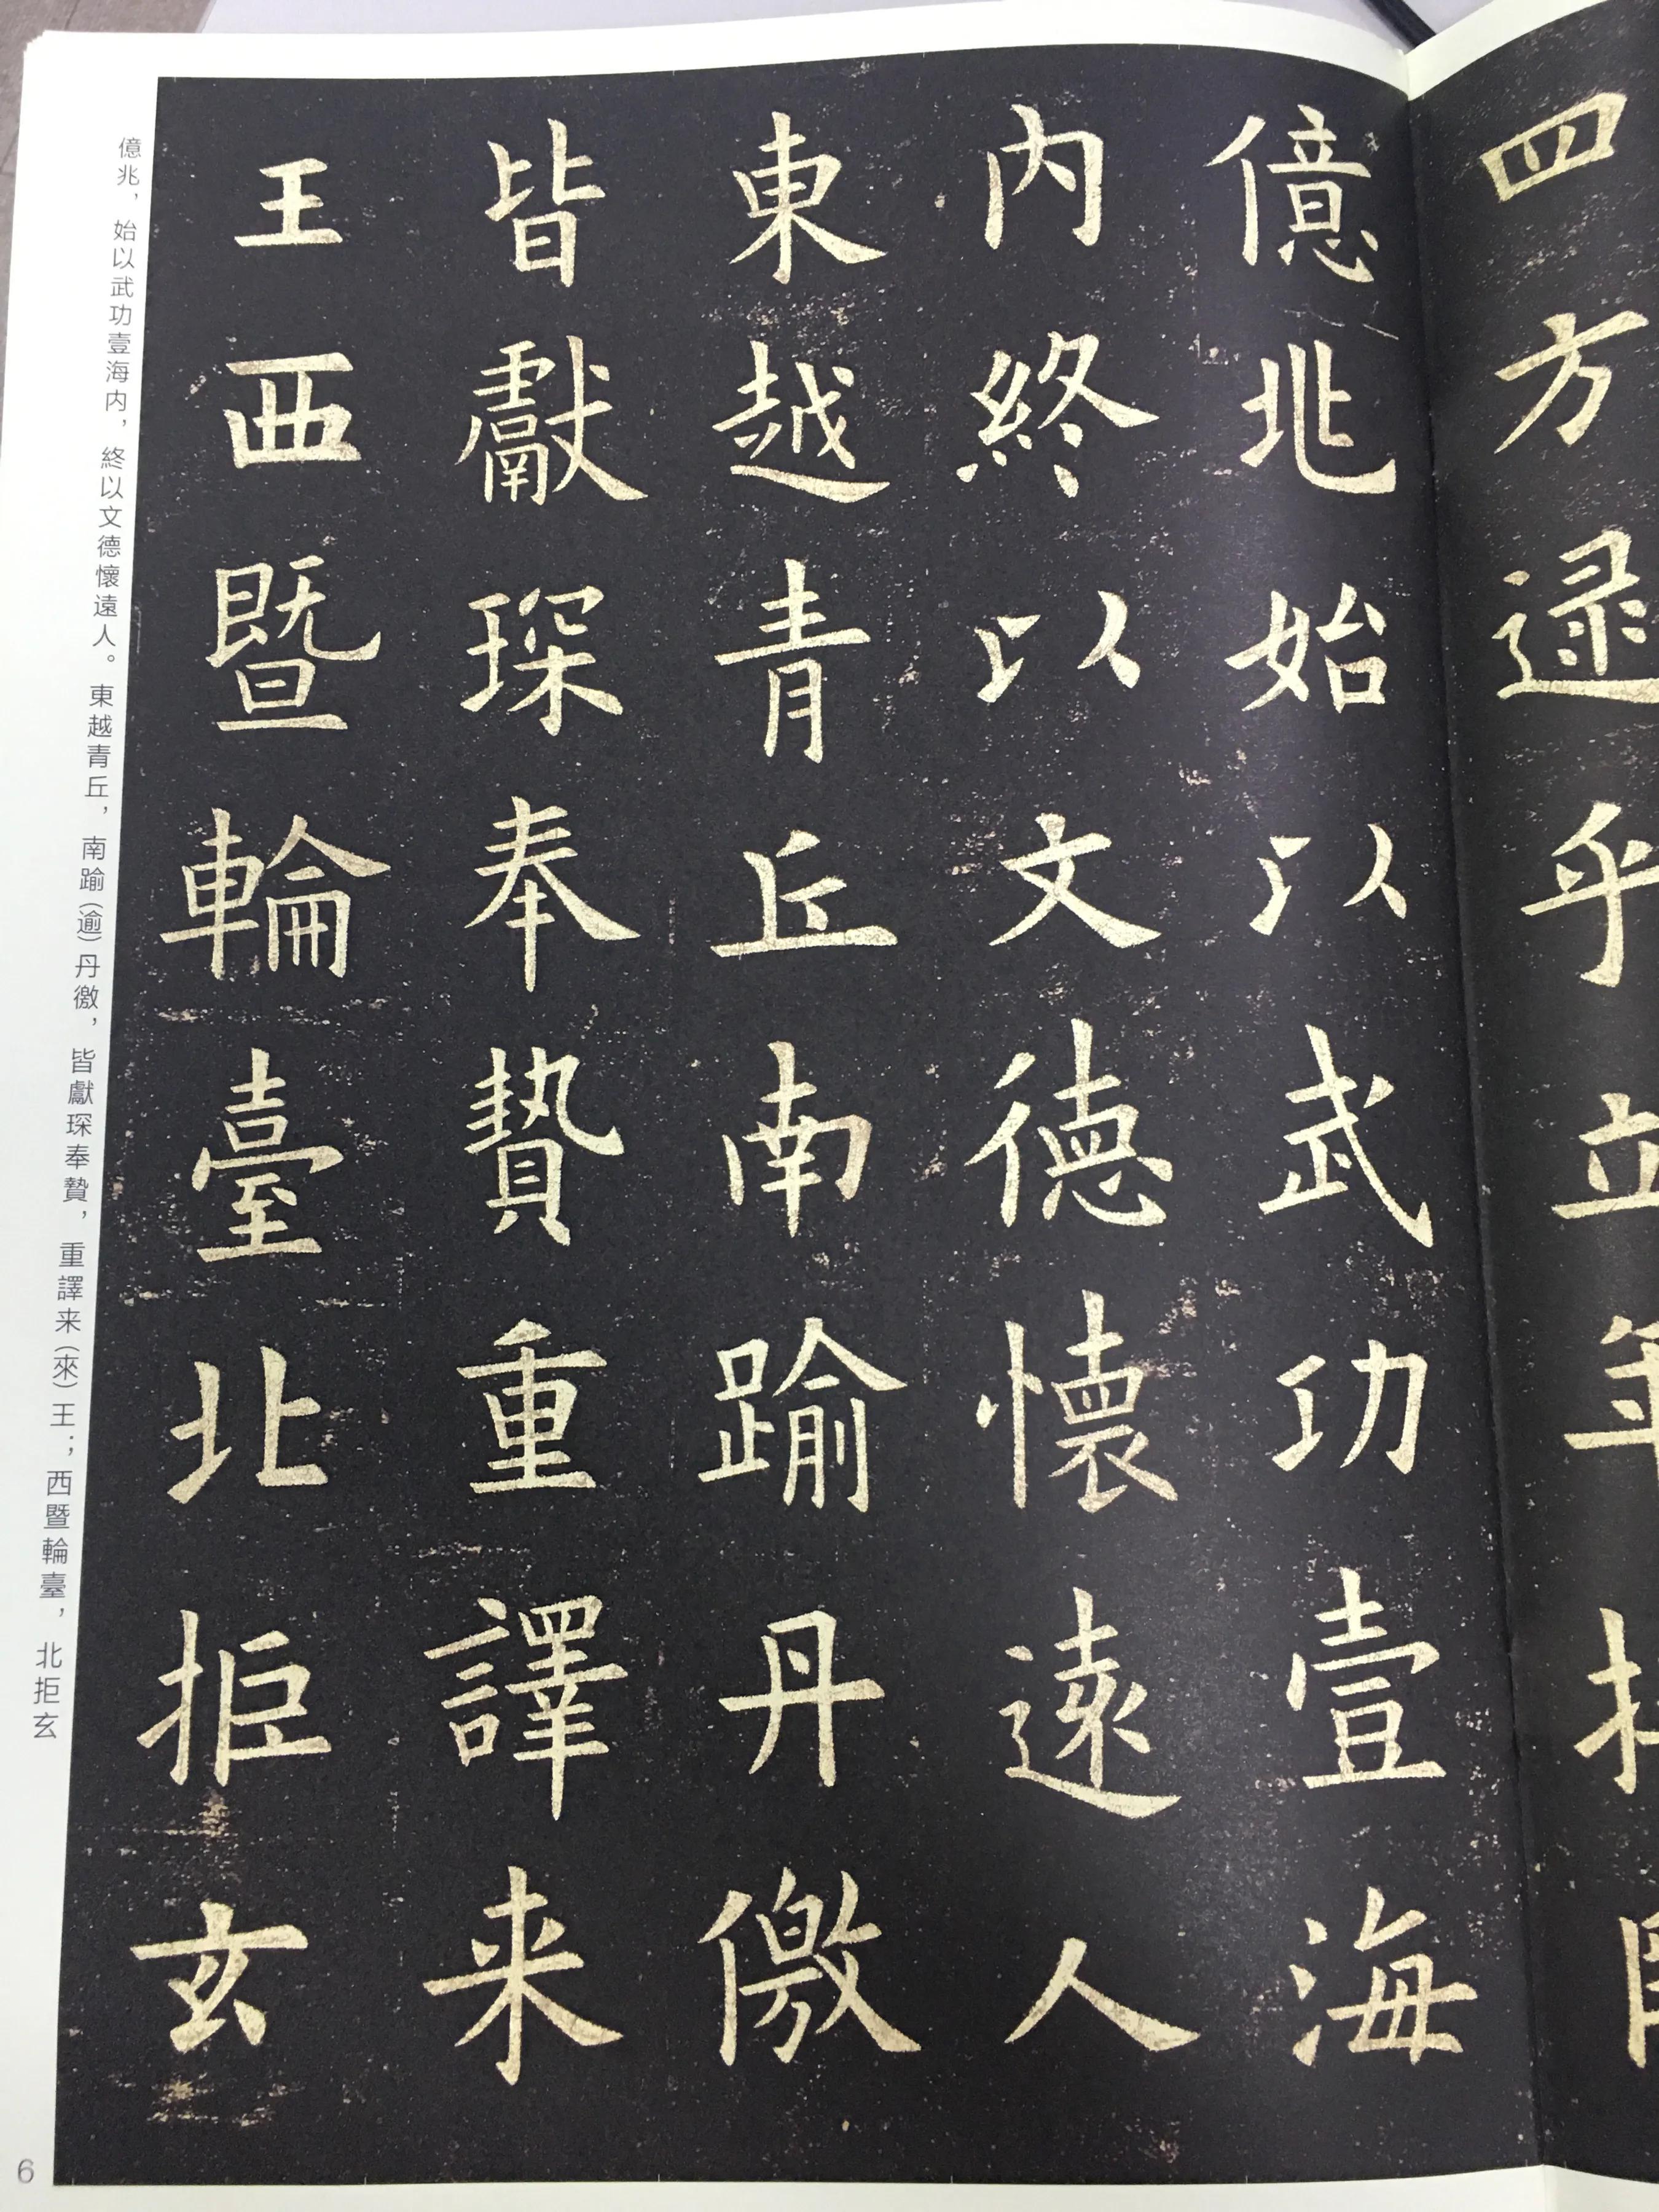 四方逯乎立年
億兆始以武功壹海
内終以文德懷遠人
東越青丘南踰丹徼
皆獻琛奉贄重譯来
王西暨輪臺北拒玄
億兆，始以武功壹海内，終以文德懷遠人。東越青丘，南踰（逾）丹徼，皆獻琛奉贄，重譯来（來）王；西暨輪臺，北拒玄
6